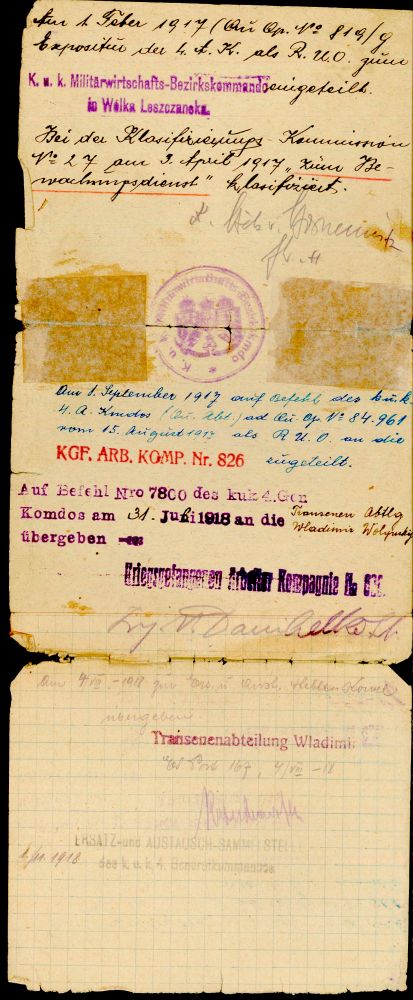 Am 1. Feber 1917 (Qu. Op. Nº 819/g
Expositur der 4. A. K. als R. U. O. zum
K. u. k. Militärwirtschafts-Bezirkskommando eingeteilt.
in Wélka Leszczanska.
Bei der Klasifizierungs-Kommission
Nº 27 am 3. April 1917 „zum Be-
wachungsdienst" klasifiziert.
K. u. k. Militärwirtschafts-Bezirkskmdo
Am 1. September 1917 auf Befehl des k.u.k.
4. A. Kmdos (Qu. Abt.) ad Qu. Op. Nº 84.961
vom 15. August 1917 als R. U. O. an die
KGF. ARB. KOMP. Nr. 826 zugeteilt.
Auf Befehl Nro 7800 des kuk 4. Gen
Komdos am 31. Juli 1918 an die Transenen Abtlg
übergeben Wladimir Wolynskij
Kriegsgefangenen Arbeiter Kompagnie No 826.
Am 4/VIII. -1918 zur u.
übergeben.
Transenenabteilung Wladimir
167, 4/VIII -18
ERSATZ- und AUSTAUSCH-SAMMELSTELLE
des k. u. k. 4. Generalkommandos
1918